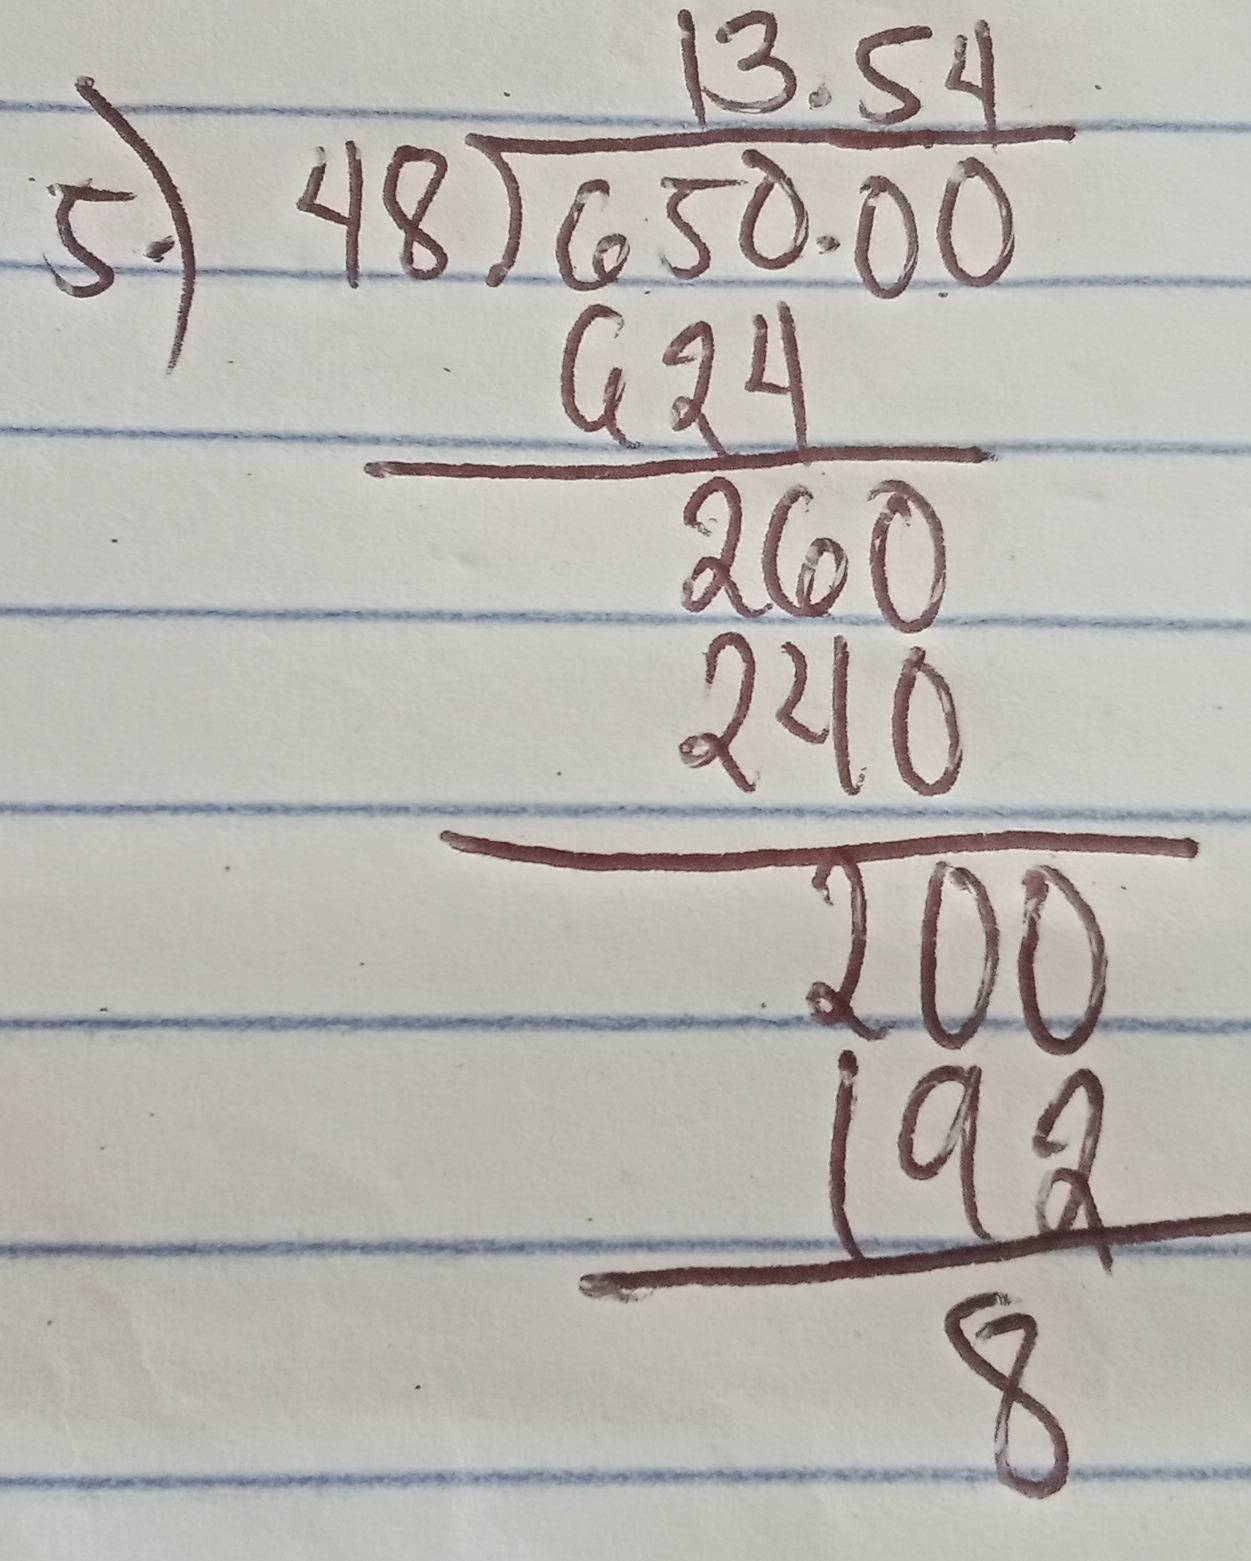 13.54
5.) 48)650.00
624
260
240
200
192
8